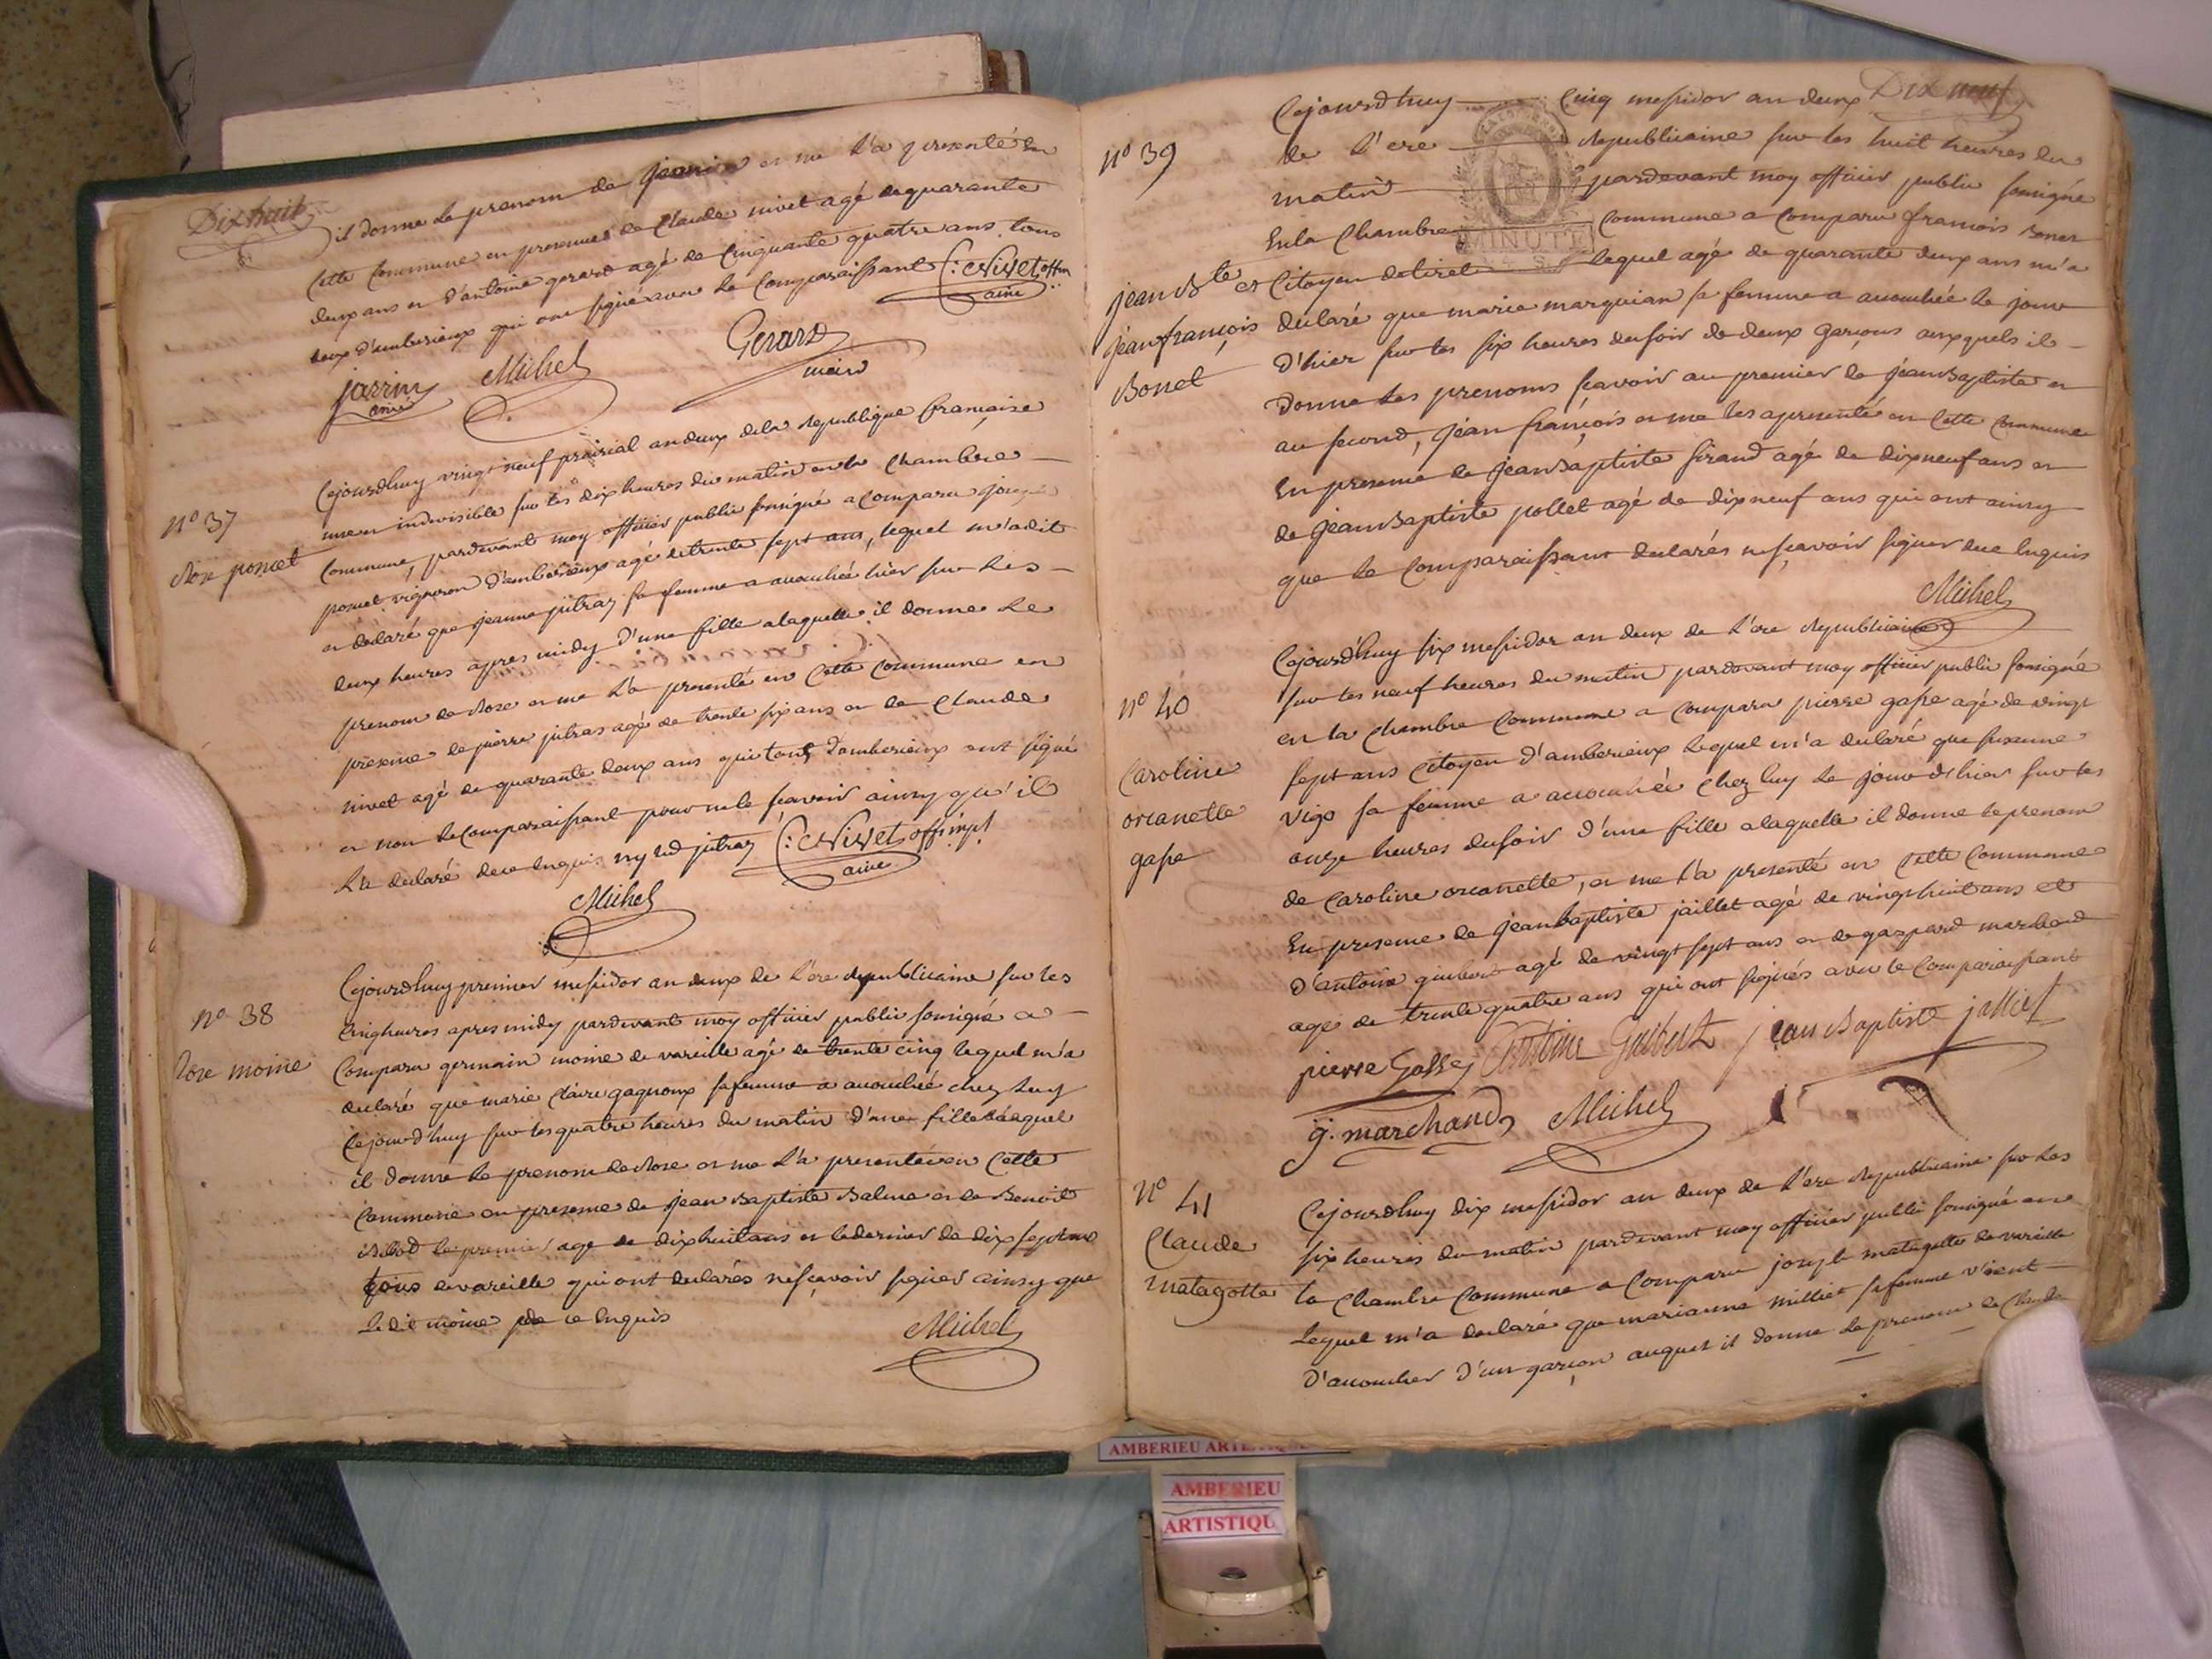 Dix huit
il donne le prenom de Janin et me l'a presenté en
Cette Commune en presence de Claude nivet agé de quarante
deux ans et d'antoine gerard agé de Cinquante quatre ans, tous
deux d'amberieux qui ont signé avec le Comparaissant C: Nivet offm
ainé
jarrin Michel Gerard
ainé maire
n° 37
Rose poncet
Cejourdhuy vingt neuf prairial an deux de la republique française
une et indivisible sur les dix heures du matin en la Chambre
Commune, pardevant moy officier public sousigné a Comparu
poncet vigneron d'amberieux agé de trente sept ans, lequel m'a dit
et declaré que jeanne juttras sa femme a accouchée hier sur les
deux heures apres midy d'une fille a laquelle il donne le
prenom de Rose et me l'a presenté en Cette Commune en
presence de pierre juttras agé de trente six ans et de Claude
nivet agé de quarante deux ans qui tous d'amberieux ont signé
et non le Comparaissant pour ne le scavoir ainsy qu'il
l'a declaré de ce Enquis C: Nivet off mpl
ainé
Michel
n° 38
Rose moine
Cejourdhuy premier messidor an deux de l'ere republicaine sur les
Cinq heures apres midy pardevant moy officier public sousigné a
Comparu germain moine de vareille agé de trente cinq lequel m'a
declaré que marie Claire gagnoux sa femme a accouchée chez luy
Cejourd'huy sur les quatre heures du matin d'une fille a laquel
il donne le prenom de Rose et me l'a presenté en Cette
Commune en presence de jean Baptiste Balme et de Benoit
Bibod le premier agé de dix huit ans et le dernier de dix sept ans
tous de vareille qui ont declarés ne scavoir signer ainsy que
le dit moine de ce Enquis
Michel
Dix neuf
n° 39
jean Bte et
jean françois
Bonet
Cejourdhuy Cinq messidor an deux
de l'ere republicaine sur les huit heures du
matin pardevant moy officier public sousigné
En la Chambre Commune a Comparu francois Bonet
MINUTE
Citoyen de tiret lequel agé de quarante deux ans m'a
declaré que marie marquian sa femme a accouchée le jour
d'hier sur les six heures du soir de deux garçons auxquels il
donne les prenoms scavoir au premier de jean Baptiste et
au second, jean françois et me les a presenté en Cette Commune
En presence de jean Baptiste sirand agé de dix neuf ans et
de jean Baptiste pollet agé de dix neuf ans qui ont ainsy
que le Comparaissant declarés ne scavoir signer de ce Enquis
Michel
n° 40
Caroline
orcanette
gasse
Cejourdhuy six messidor an deux de l'ere republicaine
sur les neuf heures du matin pardevant moy officier public sousigné
en la Chambre Commune a Comparu pierre gasse agé de vingt
sept ans Citoyen d'amberieux lequel m'a declaré que susanne
vigo sa femme a accouchée Chez luy le jour d'hier sur les
onze heures du soir d'une fille a laquelle il donne le prenom
de Caroline orcanette, et me l'a presenté en Cette Commune
En presence de jean baptiste jaillet agé de vingt huit ans et
d'antoine guibert agé de vingt sept ans et de gaspard marchand
agé de trente quatre ans qui ont signés avec le Comparaissant
pierre Gasse Antoine Guibert jean Baptiste jalliet
g. marchand Michel
n° 41
Claude
matagotte
Cejourdhuy dix messidor an deux de l'ere republicaine sur les
six heures du matin pardevant moy officier public sousigné en
la Chambre Commune a Comparu joseph matagotte de vareille
lequel m'a declaré que marianne milliet sa femme vient
d'accoucher d'un garçon auquel il donne le prenom de Claude
AMBERIEU ARTISTIQUE
AMBERIEU
ARTISTIQU